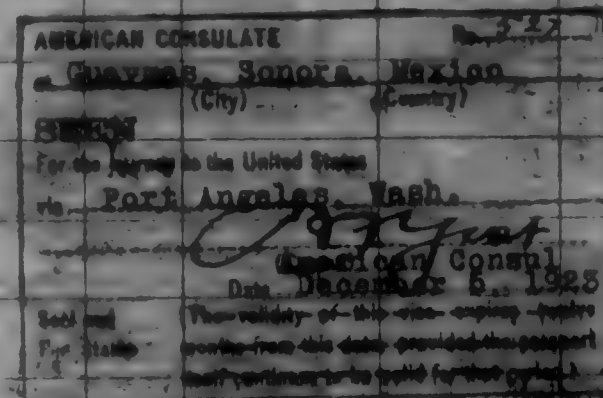 AMERICAN CONSULATE No. 317
at Guaymas, Sonora, Mexico
(City) (Country)
SEEN
For the journey to the United States
via Port Angeles, Wash.
American Consul
Date December 5, 1923
Seal and
Fee Stamp
The validity of this visa expires twelve
months from this date provided the passport
itself continues to be valid for that period.